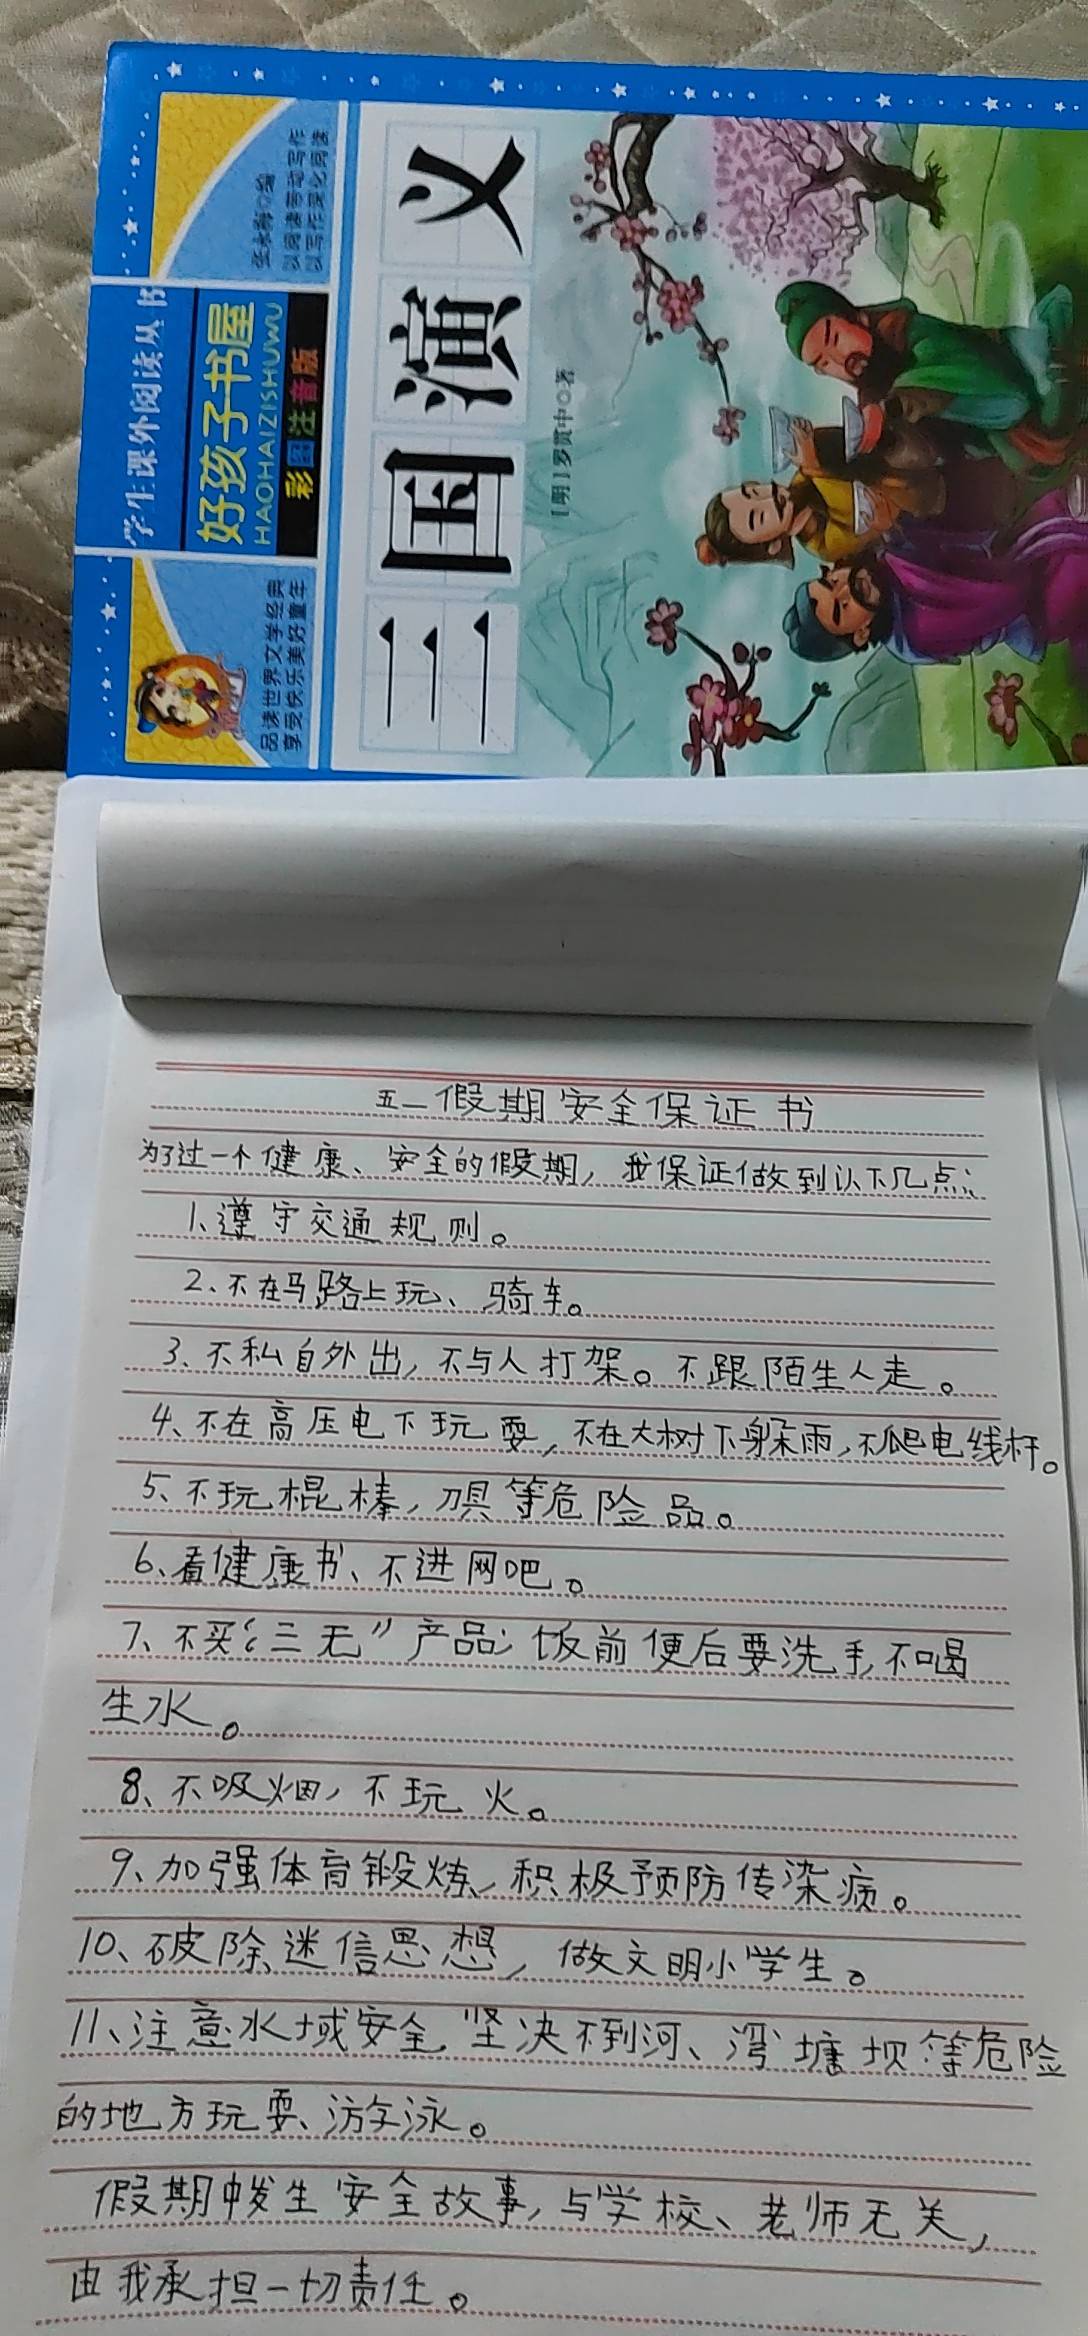 学生课外阅读丛书
好孩子书屋
HAOHAIZISHUWU
彩图注音版
品读世界文学经典
享受快乐美好童年
以阅读带动写作
以写作深化阅读
三国演义
[明]罗贯中○著
五一假期安全保证书
为了过一个健康、安全的假期，我保证做到以下几点：
1、遵守交通规则。
2、不在马路上玩、骑车。
3、不私自外出，不与人打架。不跟陌生人走。
4、不在高压电下玩耍，不在大树下躲雨，不爬电线杆。
5、不玩棍棒，刀具等危险品。
6、看健康书、不进网吧。
7、不买“三无”产品；饭前便后要洗手，不喝
生水。
8、不吸烟，不玩火。
9、加强体育锻炼，积极预防传染病。
10、破除迷信思想，做文明小学生。
11、注意水域安全，坚决不到河、湾塘坝等危险
的地方玩耍、游泳。
假期中发生安全故事，与学校、老师无关，
由我承担一切责任。